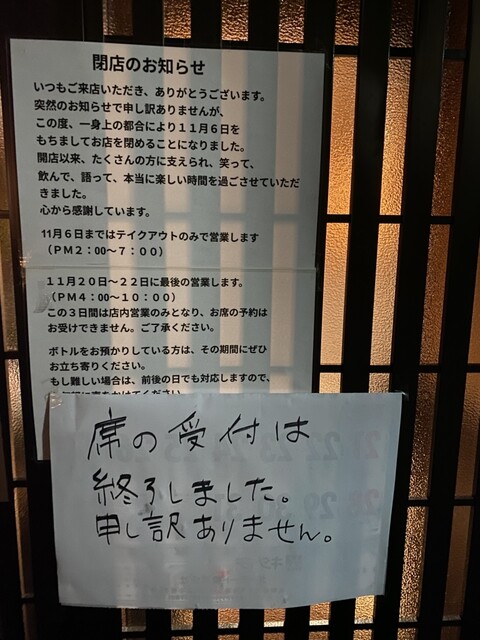 閉店のお知らせ
いつもご来店いただき、ありがとうございます。
突然のお知らせで申し訳ありませんが、
この度、一身上の都合により１１月６日を
もちましてお店を閉めることになりました。
開店以来、たくさんの方に支えられ、笑って、
飲んで、語って、本当に楽しい時間を過ごさせていただ
きました。
心から感謝しています。
11月６日まではテイクアウトのみで営業します
（ＰＭ２：00～７：００）
１１月２０日～２２日に最後の営業します。
（ＰＭ４：00～１０：００）
この３日間は店内営業のみとなり、お席の予約は
お受けできません。ご了承ください。
ボトルをお預かりしている方は、その期間にぜひ
お立ち寄りください。
もし難しい場合は、前後の日でも対応しますので、
席の受付は
終了しました。
申し訳ありません。